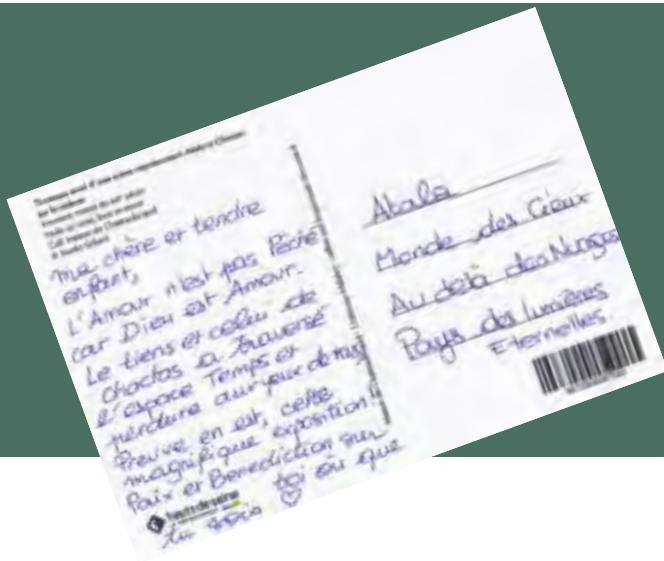 ma chère et tendre
enfant,
L'Amour n'est pas Péché
car Dieu est Amour.
Le tiens et celui de
chactas a traversé
l'espace Temps et
perdure aux yeux de tous
Preuve en est, cette
magnifique exposition!
Paix et Benediction sur
toi où que
tu sois
hauts-de-seine
Atala
Monde des Cieux
Au delà des Nuages
Pays des lumières
Eternelles